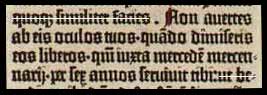 quoq; similiter facies. Non auertes
ab eis oculos tuos quādo dimiseris
eos liberos. qm̄ iuxta mercedē mercen-
narij. p̱ sex annos seruiuit tibi: ut be-